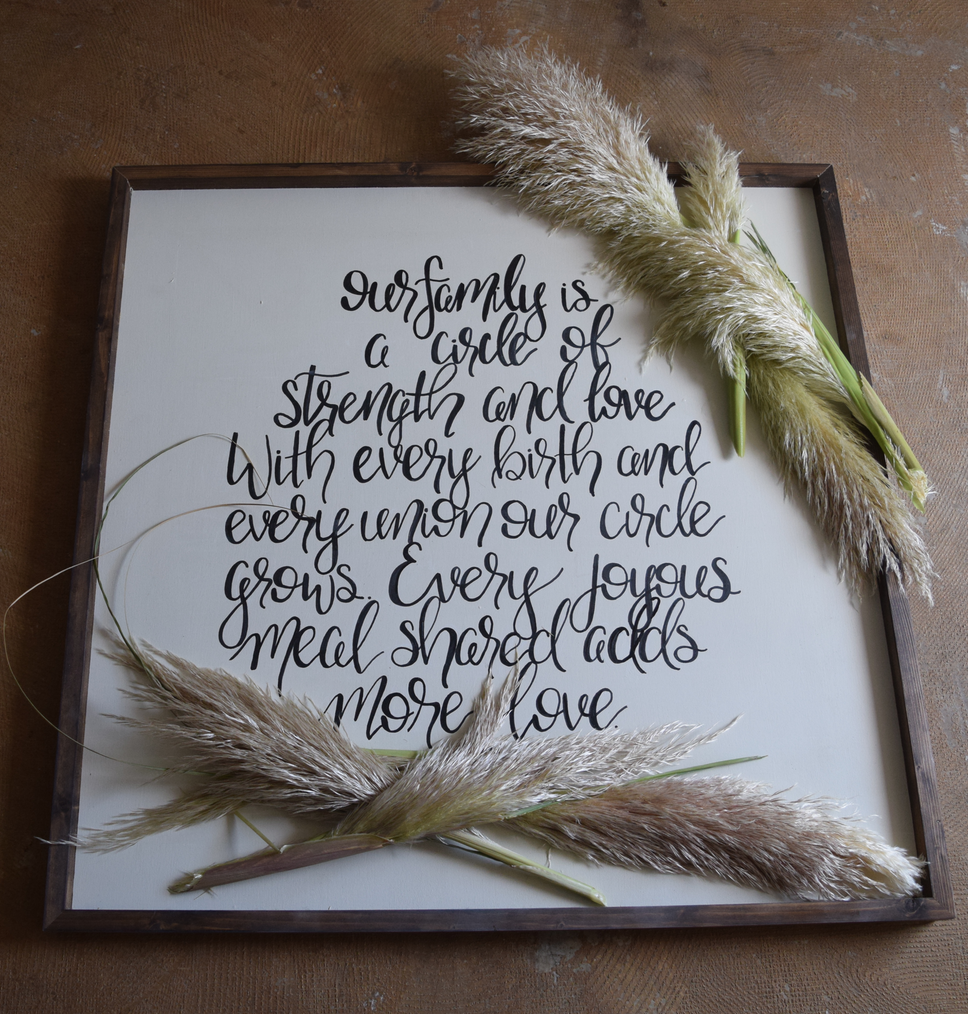 our family is
a circle of
strength and love
With every birth and
every union our circle
grows. Every joyous
meal shared adds
more love.